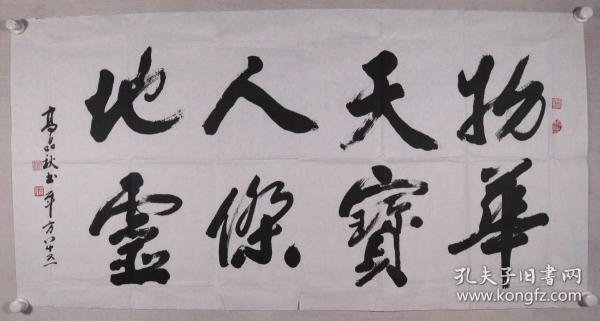 物華
天寶
人傑
地靈
高占秋书 年方八十又一
孔夫子旧书网
www.kongfz.com